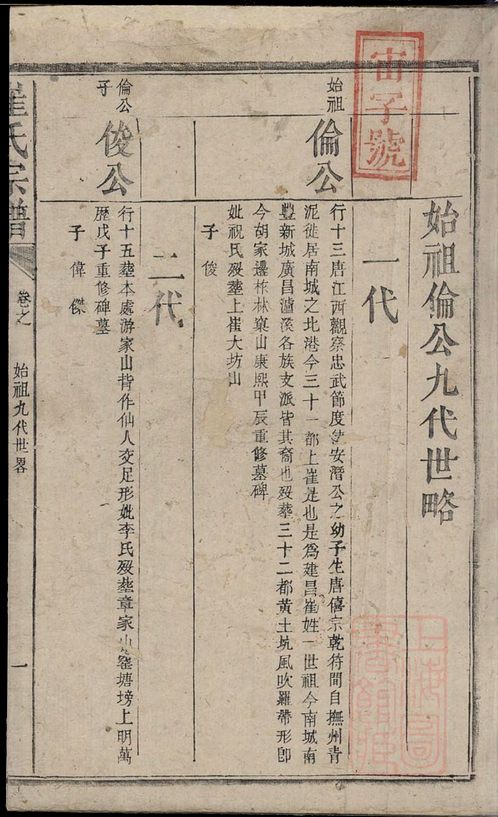 宙字號
始祖倫公九代世略
一代
始祖
倫公
行十三唐江西觀察忠武節度使安潛公之幼子生唐僖宗乾符間自撫州青
泥徙居南城之北港今三十一都上崔是也是為建昌崔姓一世祖今南城南
豐新城廣昌瀘溪各族支派皆其裔也歿葬三十二都黃土坑風吹羅帶形卽
今胡家邊柞林窠山康熙甲辰重修墓碑
妣祝氏歿葬上崔大坊山
子俊
二代
倫公
子
俊公
行十五葬本處游家山背作仙人交足形妣李氏歿葬章家山窰塘塝上明萬
歷戊子重修碑墓
子偉傑
崔氏宗譜
卷之
始祖九代世畧
一